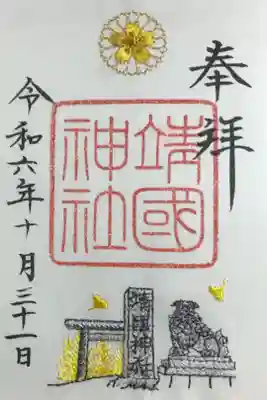 奉拝
靖國
神社
令和六年十月三十一日
靖國神社